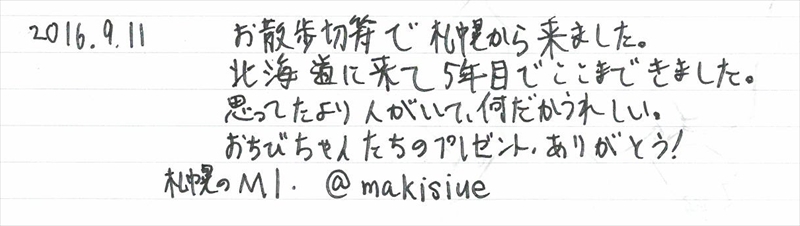 2016.9.11 お散歩切符で札幌から来ました。
北海道に来て5年目でここまできました。
思ってたより人がいて、何だかうれしい。
おちびちゃんたちのプレゼント、ありがとう!
札幌のMI. @makisiue